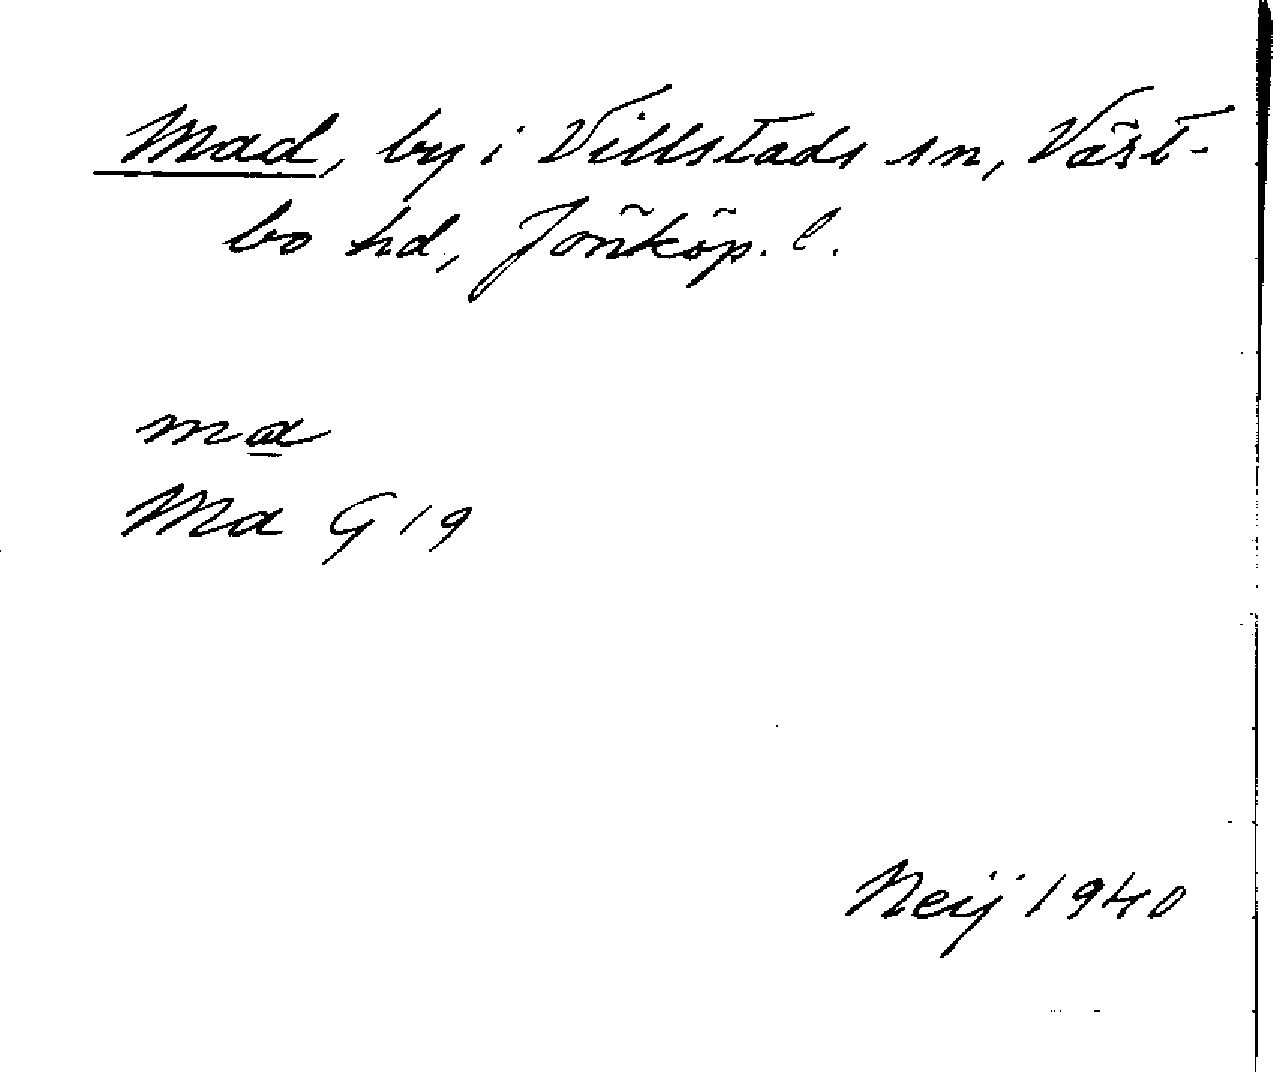 Mad, by i Villstads sn, Väst-
bo hd, Jönköp. l.
ma
Ma G 19
Neij 1940